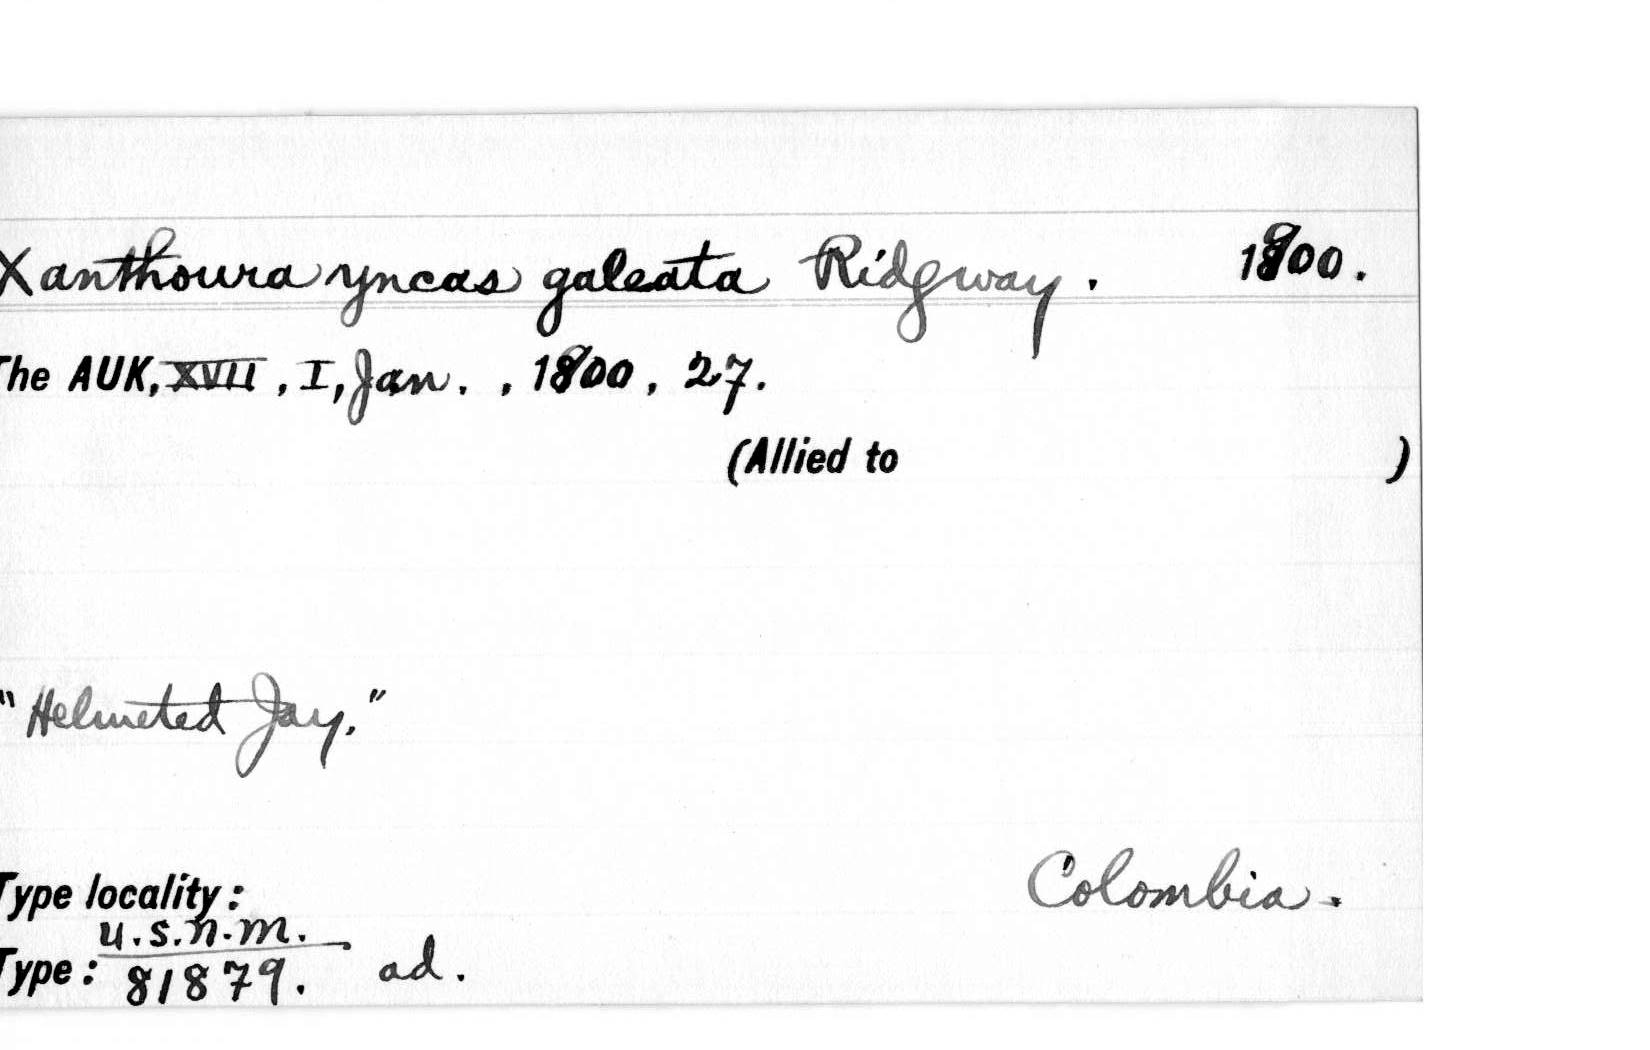 Xanthoura yncas galeata Ridgway. 1900.
The AUK, XVII, I, Jan., 1900, 27.
(Allied to )
"Helmeted Jay."
Type locality: Colombia.
U.S.N.M.
Type: 81879. ad.